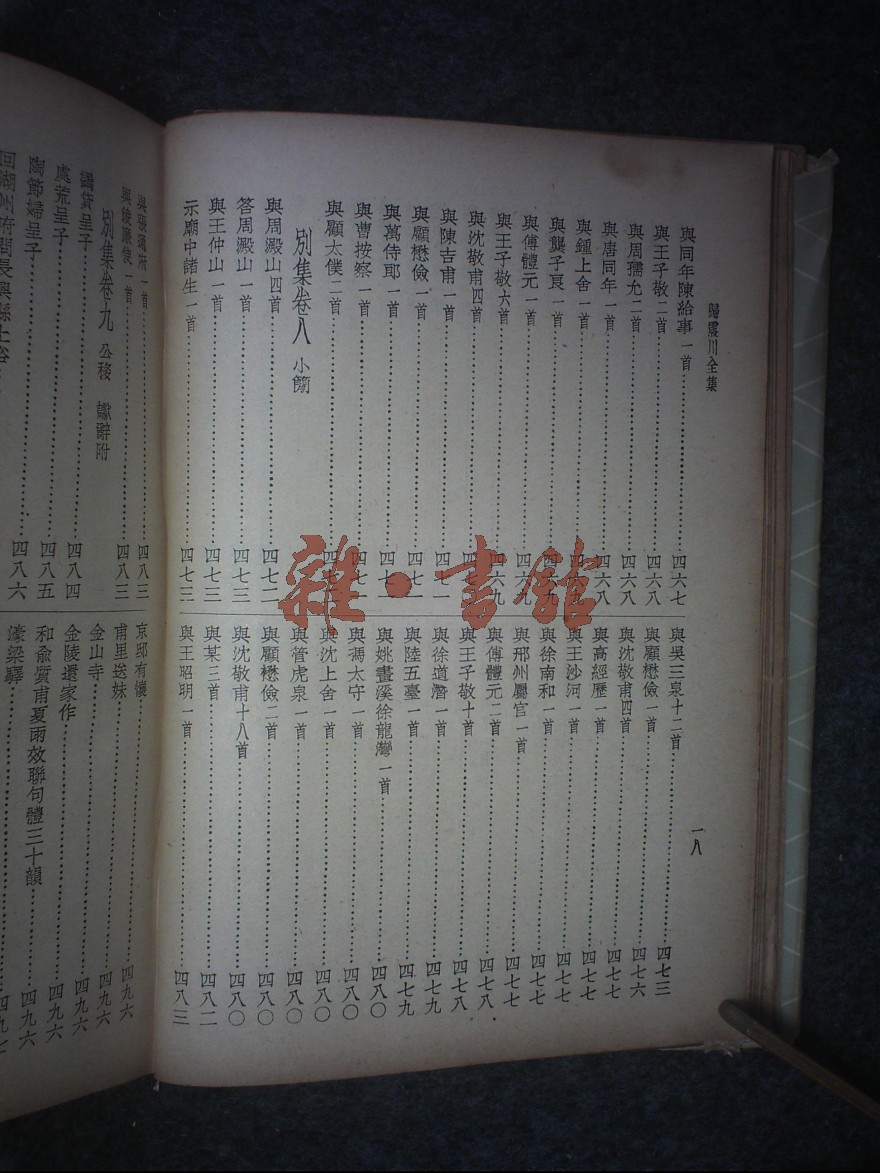 歸震川全集
與同年陳給事一首 四六七
與王子敬二首 四六八
與周孺允二首 四六八
與唐同年一首 四六八
與鍾上舍一首 四六九
與龔子良一首 四六九
與傅體元一首 四六九
與王子敬六首 四六九
與沈敬甫四首
與陳吉甫一首
與顧懋儉一首 四七一
與萬侍郎一首 四七一
與曹按察一首
與顧太僕二首
別集卷八 小簡
與周澱山四首 四七二
答周澱山一首 四七三
與王仲山一首 四七三
示廟中諸生一首 四七三
與吳三泉十二首 四七三
與顧懋儉一首 四七六
與沈敬甫四首 四七七
與高經歷一首 四七七
與王沙河一首 四七七
與徐南和一首 四七七
與邢州屬官一首 四七七
與傅體元二首 四七八
與王子敬十首 四七八
與徐道潛一首 四七九
與陸五臺一首 四七九
與姚畫溪徐龍灣一首 四八〇
與馮太守一首 四八〇
與沈上舍一首 四八〇
與管虎泉一首 四八〇
與顧懋儉二首 四八〇
與沈敬甫十八首 四八〇
與某三首 四八二
與王昭明一首 四八三
一八
一首 四八三
一首 四八三
別集卷九 公移 讞辭附
蠲貸呈子 四八四
處荒呈子 四八五
陶節婦呈子 四八六
回湖州府問長興縣土俗
京邸有懷 四九六
甫里送妹 四九六
金山寺 四九六
金陵還家作 四九六
和俞質甫夏雨效聯句體三十韻 四九六
濠梁驛 四九七
雜·書館